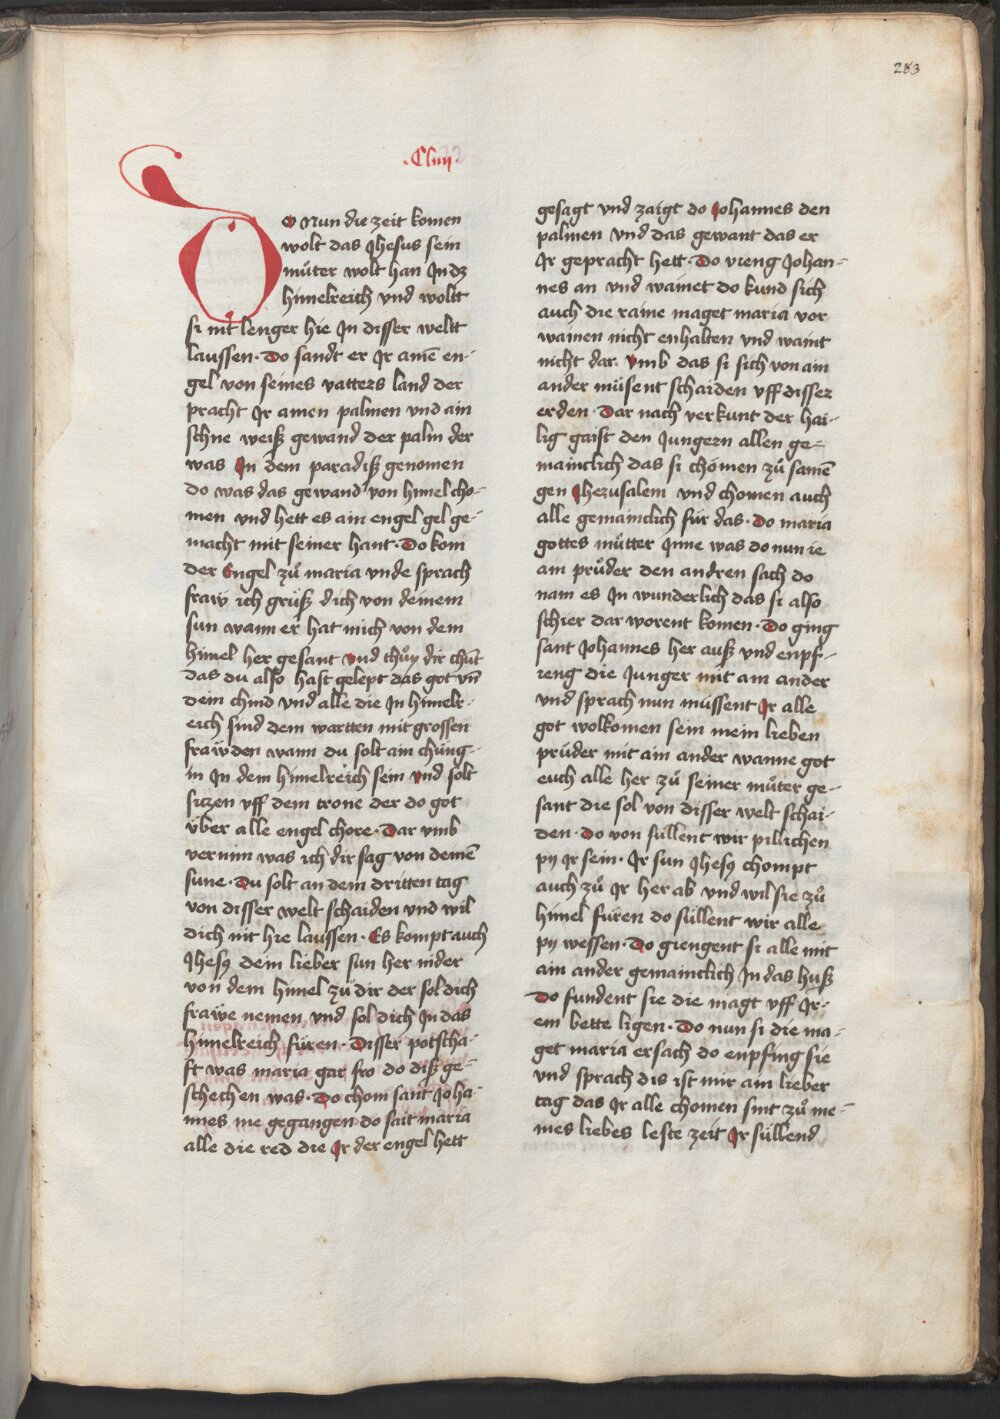 283
.Cluij.
DO Nun die zeit komen
wolt das Jhesus sein
muͦter wolt han Jn dz
himelreich vnd woltt
si nit lenger hie Jn disser weltt
laussen. Do sandt er Jr ainē en-
gel von seines vatters land der
pracht Jr ainen palmen vnd ain
schne weiß gewand der palm der
was Jn dem paradiß genomen
do was das gewand von himel cho-
men vnd hett es ain engel gel ge-
macht mit seiner hant. Do kom
der Engel zuͦ maria vnde sprach
fraẅ ich gruͤß dich von deinem
sun wann er hat mich von dem
himel her gesant vnd chuͦn dir chūt
das du also hast gelept das got vn̄
dein chind vnd alle die Jn himelr-
eich sind dem wartten mit grossen
fraẅden wann du solt ain chüng-
in Jn dem himelreich sein vnd solt
sitzen vff dem trone der do got
v̈ber alle engel chore. Dar vmb
vernim was ich dir sag von deinē
sune. Du solt an dem dritten tag
von disser welt schaiden vnd wil
dich nit hie laussen. Es kompt auch
Jhesꝰ dein lieber sun her nider
von dem himel zuͦ dir der sol dich
fraẅe nemen vnd sol dich Jn das
himelreich füren. Disser potscha-
ft was maria gar fro do diß ge-
schechen was. Do chom sant Joha-
nnes ine gegangen do sait maria
alle die red die Jr der engel hett
gesagt vnd zaigt do Johannes den
palmen vnd das gewant das er
Jr gepracht hett. Do vieng Johan-
nes an vnd wainet do kund sich
auch die raine maget maria vor
wainen nicht enhalten vnd waint
nicht dar. vmb das si sich von ain
ander müsent schaiden vff disser
erden. Dar nach verkunt der hai-
lig gaist den Jungern allen ge-
mainclich das si chömen zuͦ samē
gen Jherusalem vnd chomen auch
alle gemainclich für das. Do maria
gottes muͦtter Jnne was do nun ie
am pruͦder den andren sach do
nam es Jn wunderlich das si also
schier dar worent komen. Do ging
sant Johannes her auß vnd enpf-
ieng die Junger mit ain ander
vnd sprach nun müssent Jr alle
got wolkomen sein mein lieben
prüder mit ain ander wanne got
euch alle her zuͦ seiner muͦter ge-
sant die sol von disser welt schai-
den. Do von süllent wir pillichen
py Jr sein. Jr sun Jhesꝰ chompt
auch zuͦ Jr her ab vnd wil sie zuͦ
himel füren do süllent wir alle
py wessen. Do giengent si alle mit
ain ander gemainclich Jn das huß
Do fundent sie die magt vff Jr-
em bette ligen. Do nun si die ma-
get maria ersach do enpfing sie
vnd sprach dis ist mir ain lieber
tag das Jr alle chomen sint zuͦ me-
ines liebes leste zeit Jr süllend